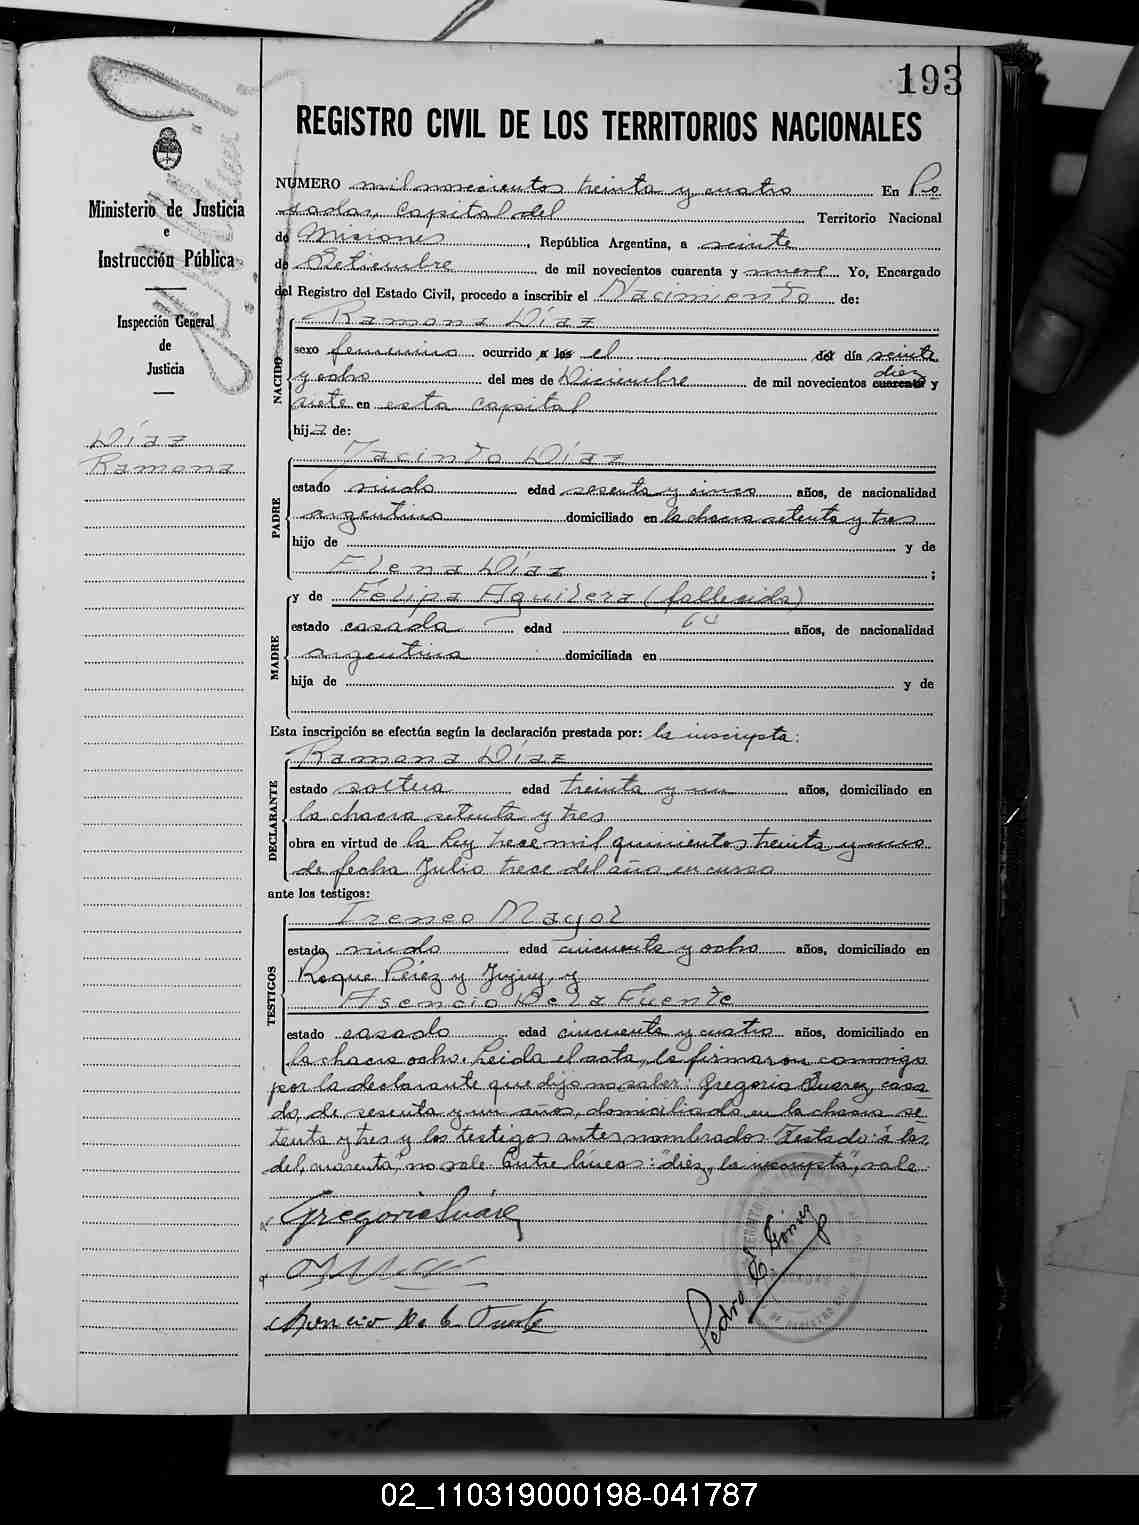 193
REGISTRO CIVIL DE LOS TERRITORIOS NACIONALES
Ministerio de Justicia
e
Instrucción Pública
Inspección General
de
Justicia
Díaz
Ramona
NUMERO mil novecientos treinta y cuatro En Po
sadas, Capital del Territorio Nacional
de Misiones, República Argentina, a veinte
de Setiembre de mil novecientos cuarenta y nueve Yo, Encargado
del Registro del Estado Civil, procedo a inscribir el Nacimiento de:
NACIDO
Ramona Díaz
sexo femenino ocurrido a las el del día veinte
diez
y ocho del mes de Diciembre de mil novecientos cuarenta y
siete en esta capital
hija de:
PADRE
Jacinto Díaz
estado viudo edad sesenta y cinco años, de nacionalidad
argentino domiciliado en la chacra setenta y tres
hijo de y de
Elena Díaz;
MADRE
y de Felipa Aguilera (fallecida)
estado casada edad años, de nacionalidad
argentina domiciliada en
hija de y de
Esta inscripción se efectúa según la declaración prestada por: la inscripta:
DECLARANTE
Ramona Díaz
estado soltera edad treinta y un años, domiciliado en
la chacra setenta y tres
obra en virtud de la Ley trece mil quinientos treinta y uno
de fecha Julio trece del año en curso
ante los testigos:
TESTIGOS
Ireneo Mayol
estado viudo edad cincuenta y ocho años, domiciliado en
Roque Pérez y Jujuy, y
Asencio De la Fuente
estado casado edad cincuenta y cuatro años, domiciliado en
la chacra ocho. Leida el acta, la firmaron conmigo
por la declarante que dijo no saber: Gregorio Suarez, casa
do, de sesenta y un años, domiciliado en la chacra se
tenta y tres y los testigos antes nombrados. Testado: "a las,
del, cuarenta", no vale. Entre líneas: "diez, la inscripta", vale
Gregorio Suárez
Asencio De la Fuente
Pedro E. Gómez
02_110319000198-041787